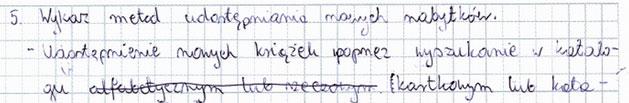 5. Wykaz metod udostępniania nowych nabytków.
- Udostępnienie nowych książek poprzez wyszukanie w katalo-
gu alfabetycznym lub rzeczowym (kartkowym lub kata-